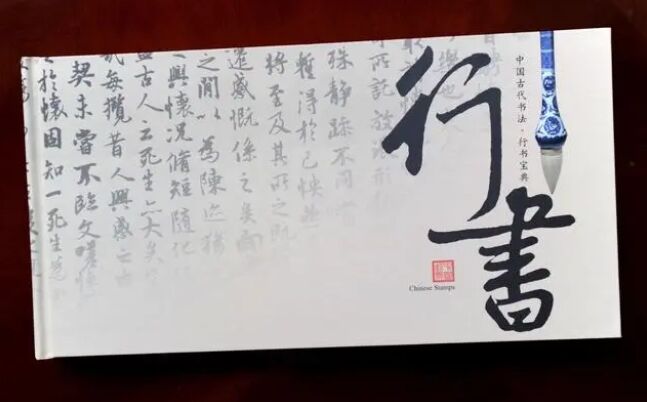 中国古代书法·行书宝典
行書
Chinese Stamps
所託放浪形
殊静躁不同當
暫得於己快然
將至及其所之既
遷感慨係之矣向
之間以為陳迹猶
之興懷況脩短隨化
古人云死生亦大矣
每攬昔人興感之由
契未嘗不臨文嗟悼
於懷固知一死生為